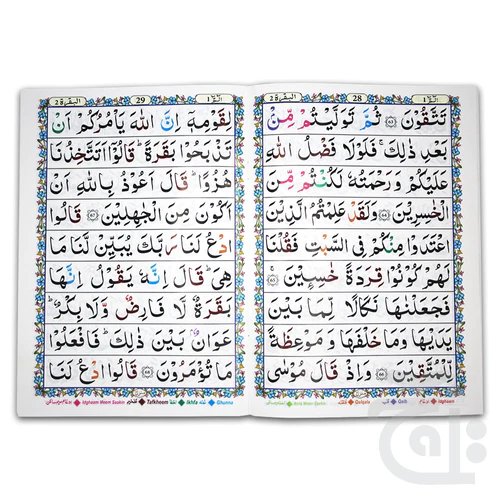 البقرة ٢
28
الٓمّٓ ١
تَتَّقُوْنَ ﴿٦٣﴾ ثُمَّ تَوَلَّيْتُمْ مِّنْۢ
بَعْدِ ذٰلِكَ ۚ فَلَوْلَا فَضْلُ اللّٰهِ
عَلَيْكُمْ وَرَحْمَتُهٗ لَكُنْتُمْ مِّنَ
الْخٰسِرِيْنَ ﴿٦٤﴾ وَلَقَدْ عَلِمْتُمُ الَّذِيْنَ
اعْتَدَوْا مِنْكُمْ فِى السَّبْتِ فَقُلْنَا
لَهُمْ كُوْنُوْا قِرَدَةً خٰسِـِٕيْنَ ﴿٦٥﴾
فَجَعَلْنٰهَا نَكَالًا لِّمَا بَيْنَ
يَدَيْهَا وَمَا خَلْفَهَا وَمَوْعِظَةً
لِّلْمُتَّقِيْنَ ﴿٦٦﴾ وَاِذْ قَالَ مُوْسٰى
Qalqala
Qalb
Idghaam
البقرة ٢
29
الٓمّٓ ١
لِقَوْمِهٖۤ اِنَّ اللّٰهَ يَاْمُرُكُمْ اَنْ
تَذْبَحُوْا بَقَرَةً ؕ قَالُوْۤا اَتَتَّخِذُنَا
هُزُوًا ؕ قَالَ اَعُوْذُ بِاللّٰهِ اَنْ
اَكُوْنَ مِنَ الْجٰهِلِيْنَ ﴿٦٧﴾ قَالُوا
ادْعُ لَنَا رَبَّكَ يُبَيِّنْ لَّنَا مَا
هِىَ ؕ قَالَ اِنَّهٗ يَقُوْلُ اِنَّهَا
بَقَرَةٌ لَّا فَارِضٌ وَّلَا بِكْرٌ ؕ
عَوَانٌۢ بَيْنَ ذٰلِكَ ؕ فَافْعَلُوْا
مَا تُؤْمَرُوْنَ ﴿٦٨﴾ قَالُوا ادْعُ لَنَا
Idghaam Meem Saakin
Tafkheem
Ikhfa
Ghunna